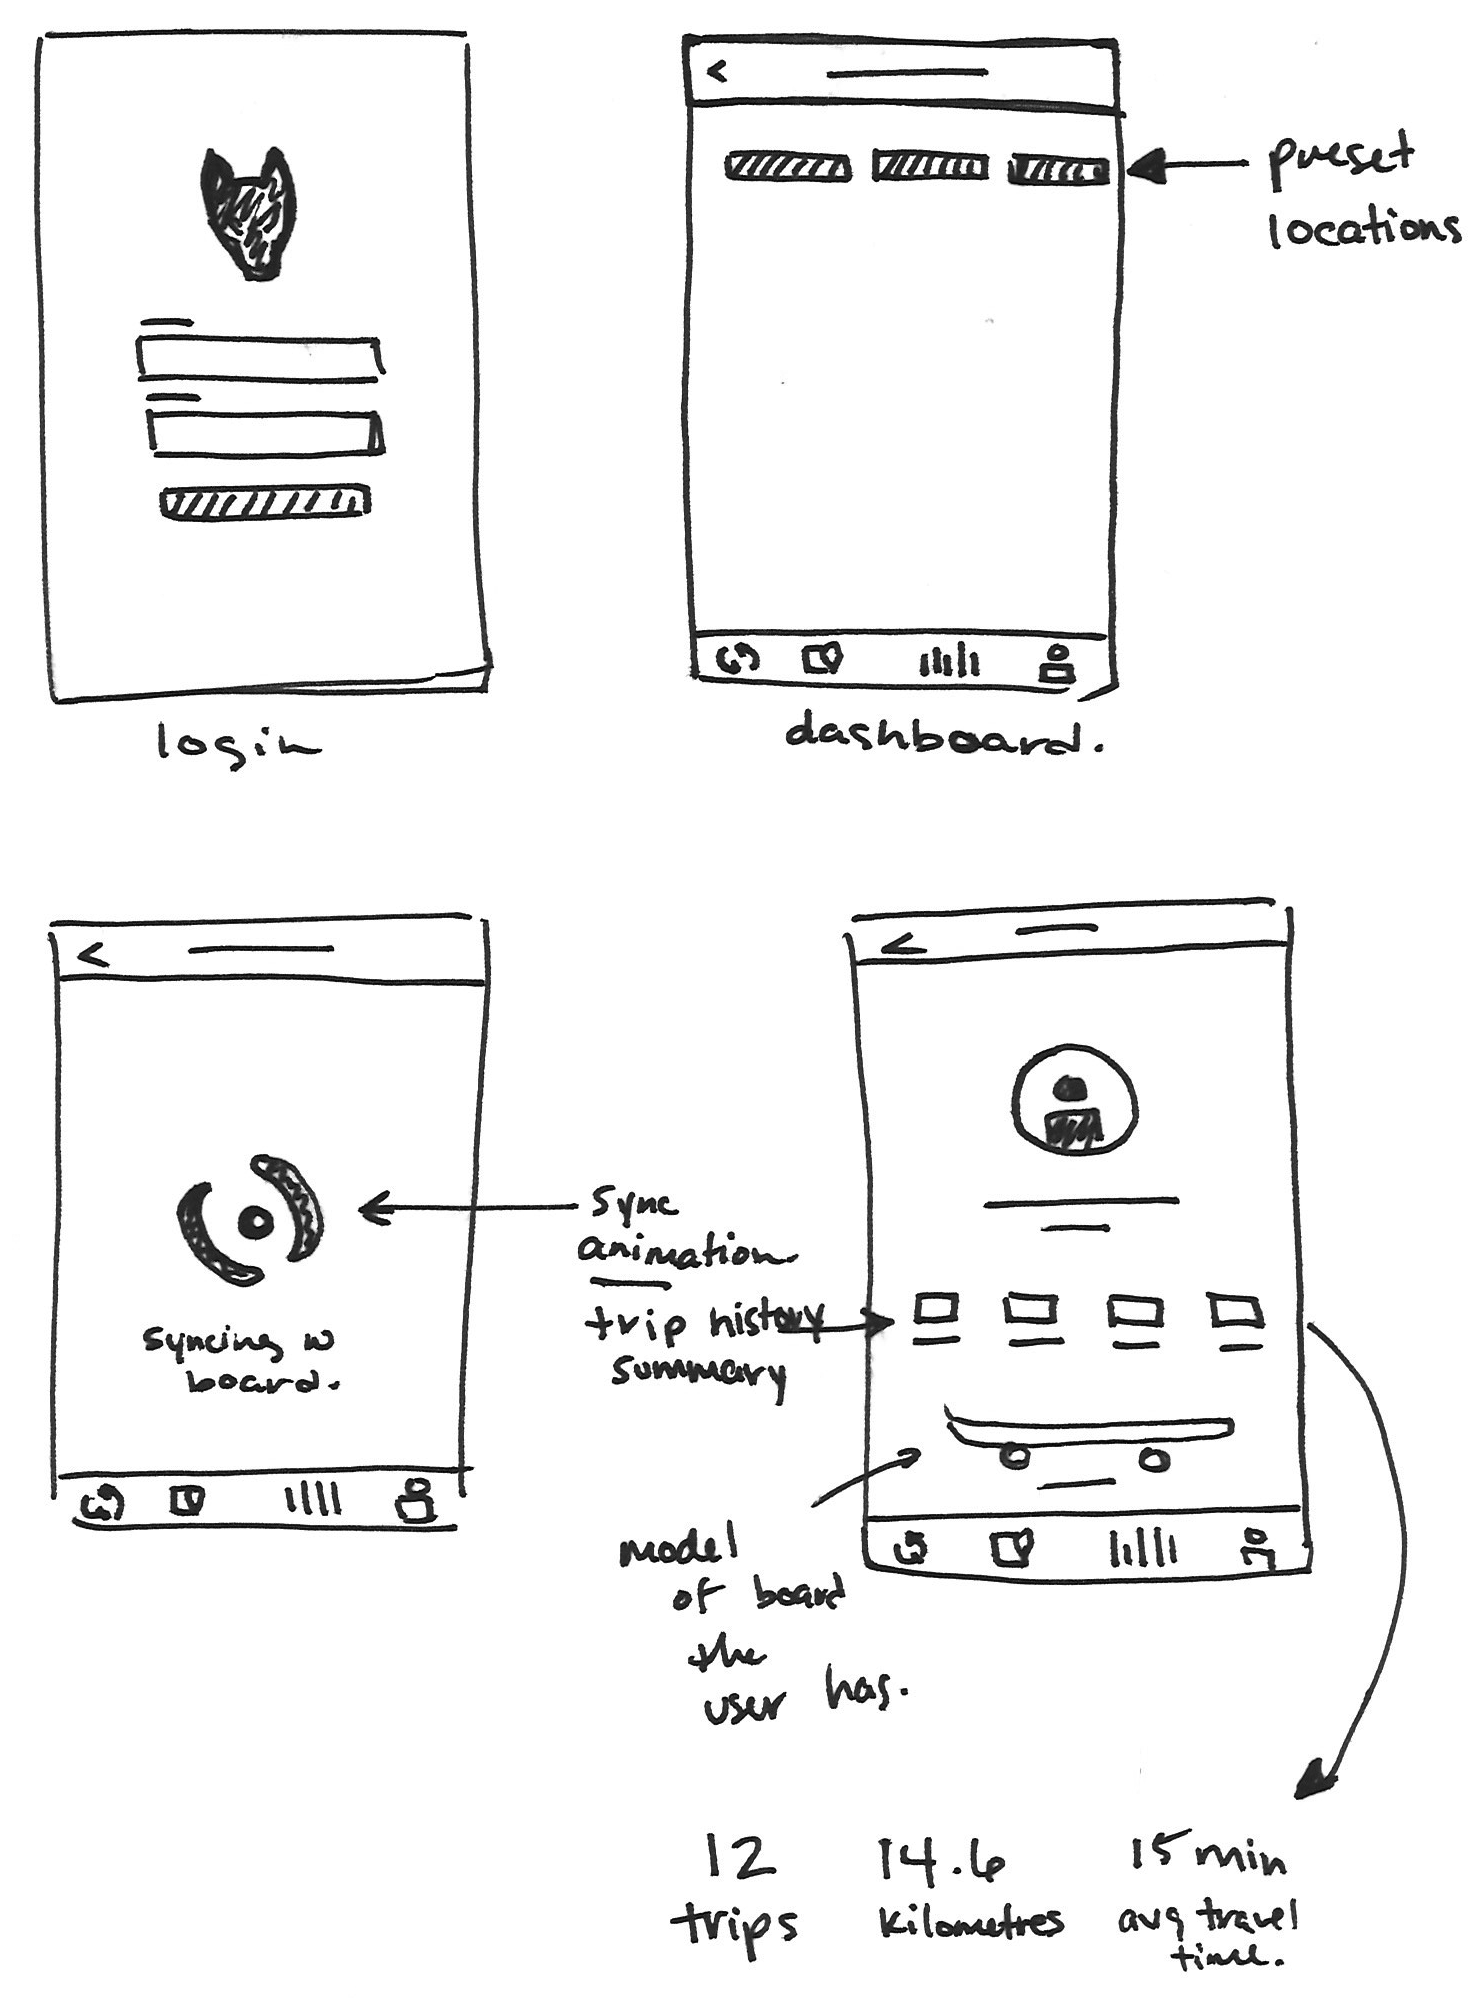 preset
locations
login
dashboard.
sync
animation
trip history
summary
syncing w
board.
model
of board
the
user has.
12
trips
14.6
kilometres
15 min
avg travel
time.